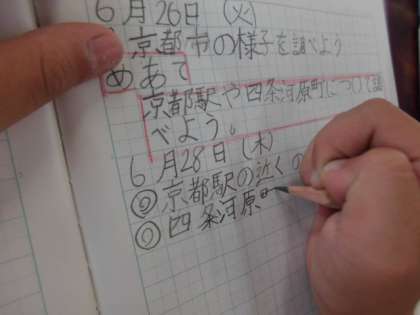 6月26日(火)
京都市の様子を調べよう
めあて
京都駅や四条河原町について調
べよう。
6月28日(木)
京都駅の近くの
四条河原